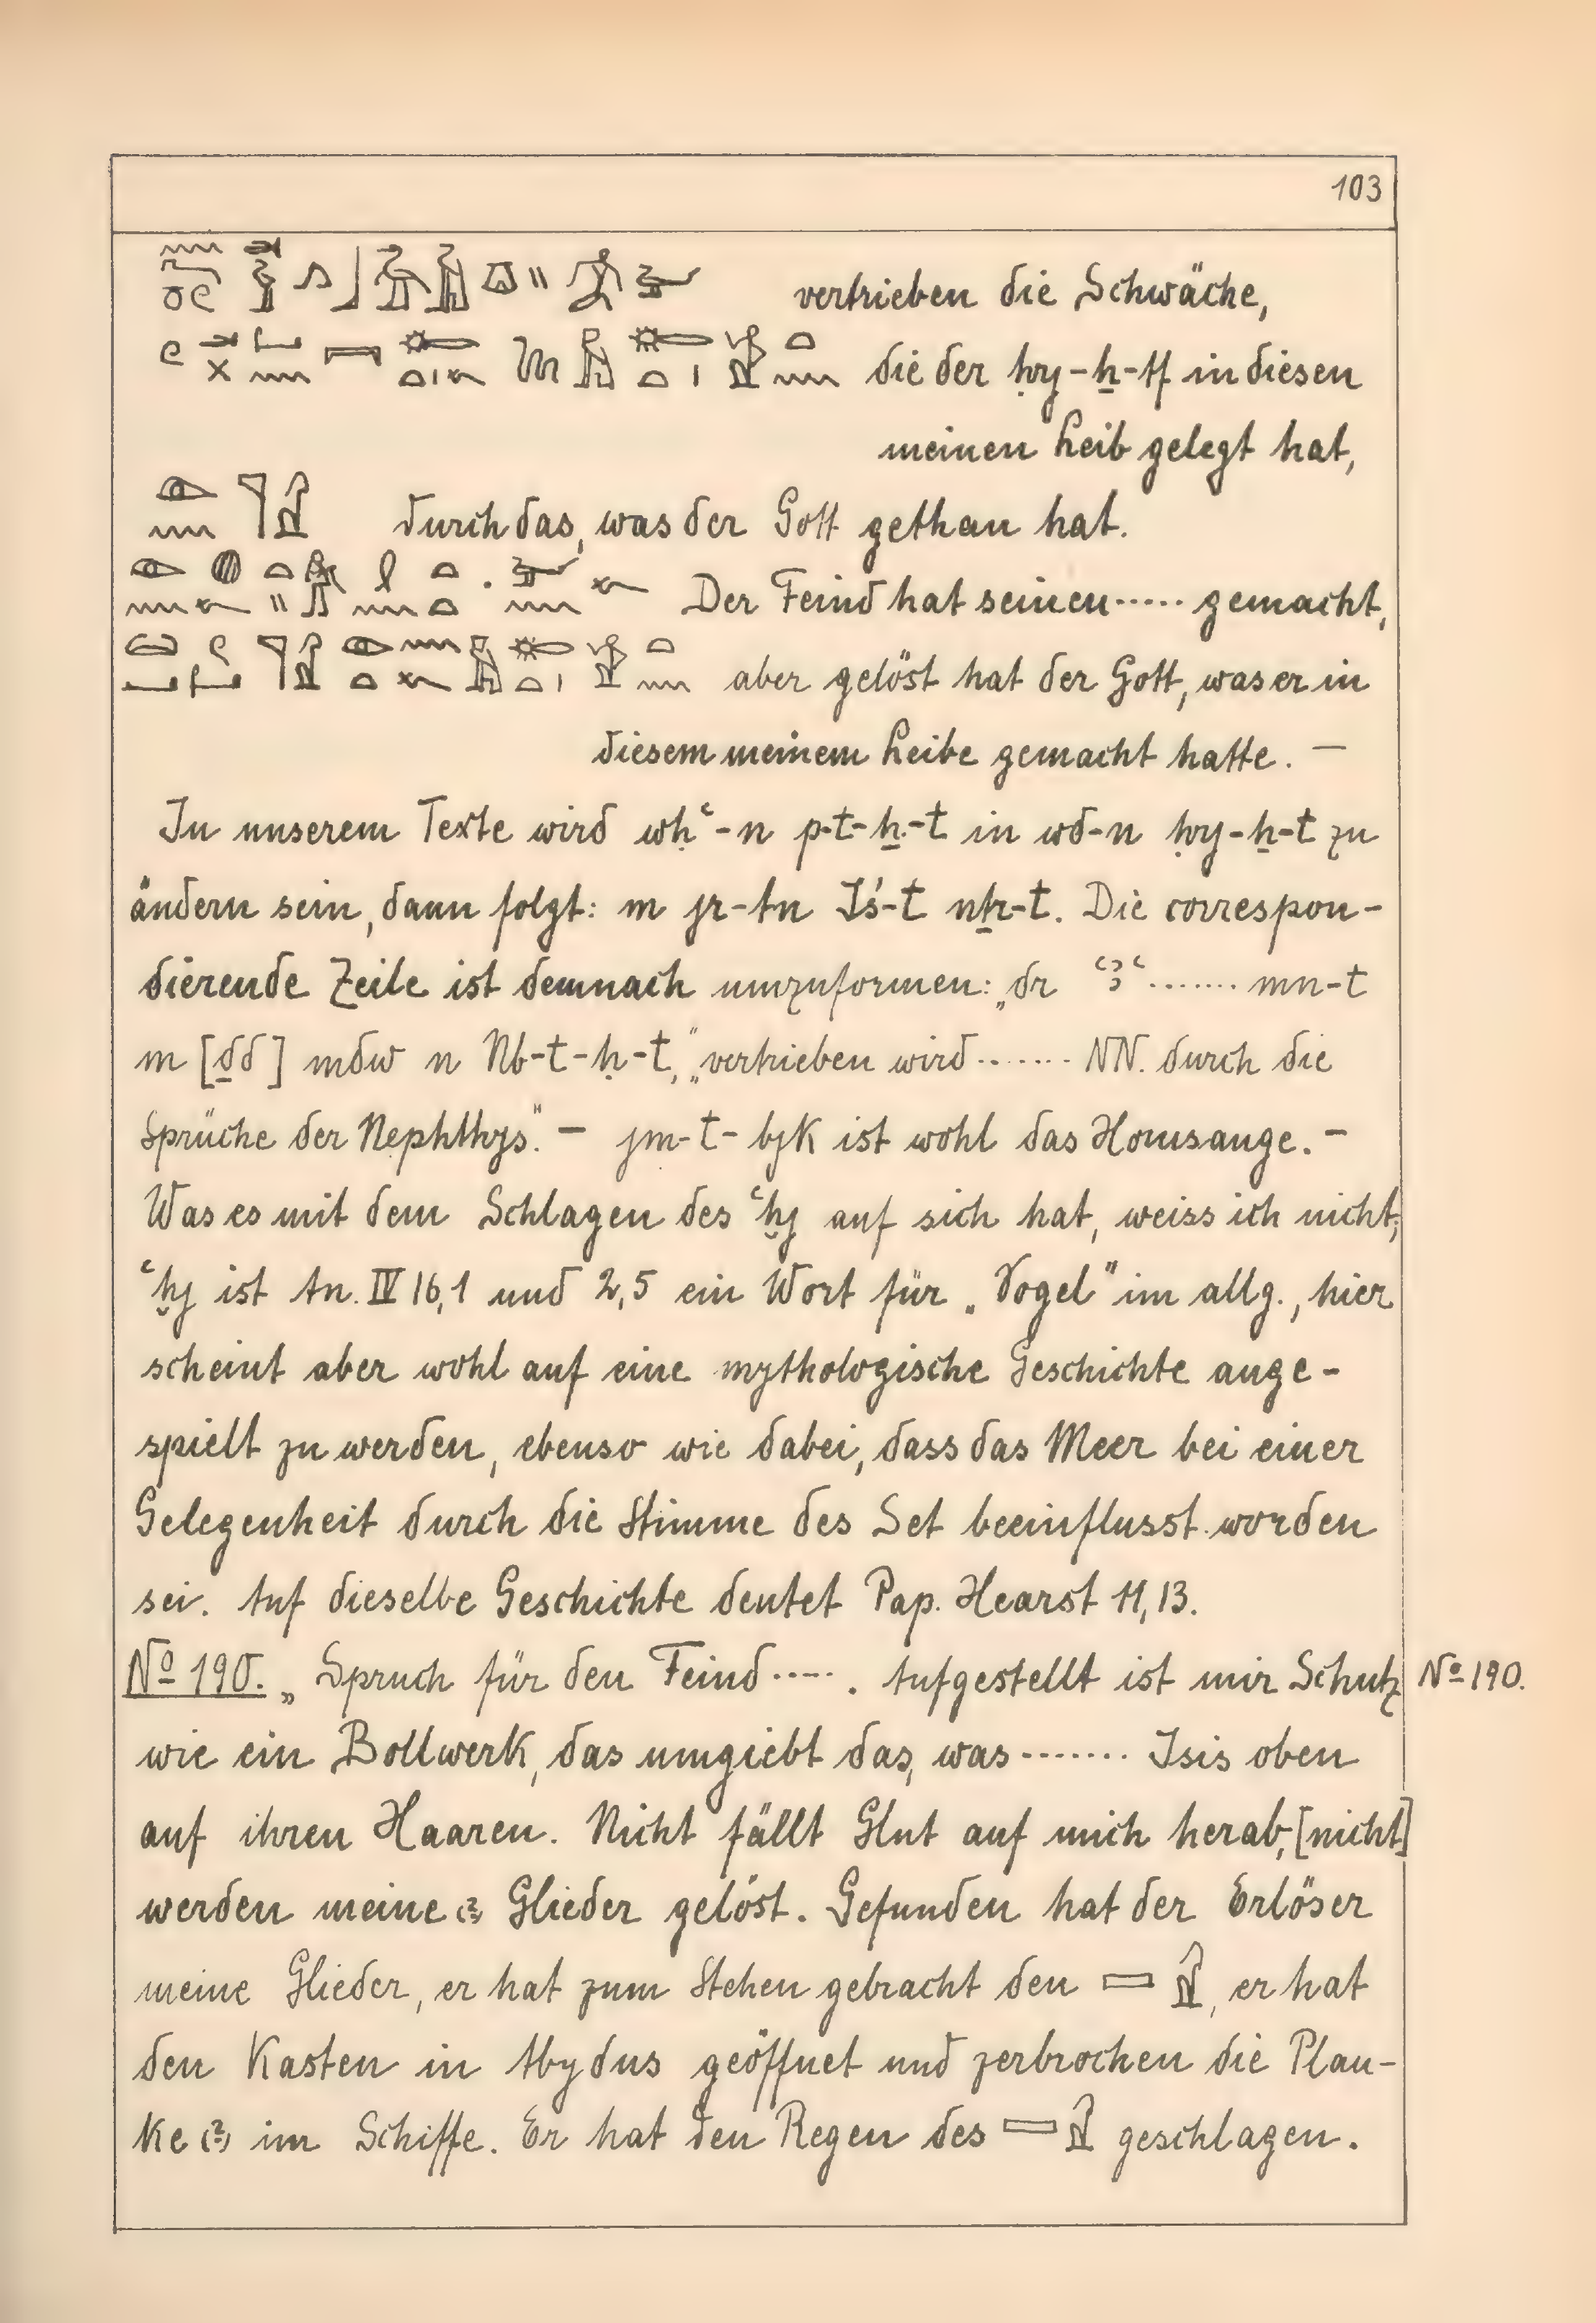 103
vertrieben die Schwäche,
die der ḥꜣy-ẖ-tf in diesen
meinen Leib gelegt hat,
durch das, was der Gott gethan hat.
Der Feind hat seinen ..... gemacht,
aber gelöst hat der Gott, was er in
diesem meinem Leibe gemacht hatte. —
In unserem Texte wird wḥꜥ-n p-t-ẖ-t in wd-n ḥꜣy-ẖ-t zu
ändern sein, dann folgt: m jr-tn Jś-t nṯr-t. Die correspon-
dierende Zeile ist demnach umzuformen: „dr ꜥꜣꜥ ....... mn-t
m [ḏd] mdw n Nb-t-ḥ-t,“ „vertrieben wird ....... NN. durch die
Sprüche der Nephthys.“ — jm-t-bjk ist wohl das Horusauge. —
Was es mit dem Schlagen des ꜥḫj auf sich hat, weiss ich nicht;
ꜥḫj ist An. IV 16,1 und 2,5 ein Wort für „Vogel“ im allg., hier
scheint aber wohl auf eine mythologische Geschichte ange-
spielt zu werden, ebenso wie dabei, dass das Meer bei einer
Gelegenheit durch die Stimme des Set beeinflusst worden
sei. Auf dieselbe Geschichte deutet Pap. Hearst 11,13.
No 190. „Spruch für den Feind ..... . Aufgestellt ist mir Schutz No 190.
wie ein Bollwerk, das umgiebt das, was ....... Isis oben
auf ihren Haaren. Nicht fällt Glut auf mich herab, [nicht]
werden meine (?) Glieder gelöst. Gefunden hat der Erlöser
meine Glieder, er hat zum Stehen gebracht den 𓈙𓀭, er hat
den Kasten in Abydus geöffnet und zerbrochen die Plan-
ke (?) im Schiffe. Er hat den Regen des 𓈙𓀭 geschlagen.